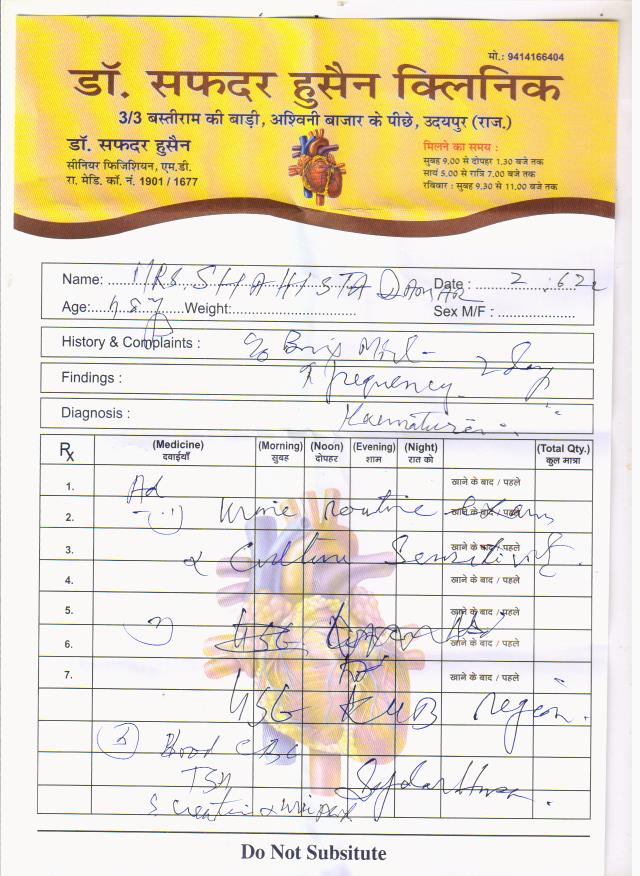 मो.: 9414166404
डॉ. सफदर हुसैन क्लिनिक
3/3 बस्तीराम की बाड़ी, अश्विनी बाजार के पीछे, उदयपुर (राज.)
डॉ. सफदर हुसैन
सीनियर फिजिशियन, एम.डी.
रा. मेडि. कॉ. नं. 1901 / 1677
मिलने का समय :
सुबह 9.00 से दोपहर 1.30 बजे तक
सायं 5.00 से रात्रि 7.00 बजे तक
रविवार : सुबह 9.30 से 11.00 बजे तक
Name: MRS. SHAHISTA Date : 2.6.22
Age: Weight: Sex M/F :
History & Complaints : c/o Burning Mict - 2 day
Findings : ↑ frequency
Diagnosis : Haematuria
Rx (Medicine) (Morning) (Noon) (Evening) (Night) (Total Qty.)
दवाईयाँ सुबह दोपहर शाम रात को कुल मात्रा
1. Ad खाने के बाद / पहले
2. (1) Urine Routine Exam खाने के बाद / पहले
3. & Culture Sensitivity खाने के बाद / पहले
4. खाने के बाद / पहले
5. खाने के बाद / पहले
6. USG खाने के बाद / पहले
7. खाने के बाद / पहले
USG KUB region.
(3) Blood CBC
TSH
S. creatin
Do Not Subsitute